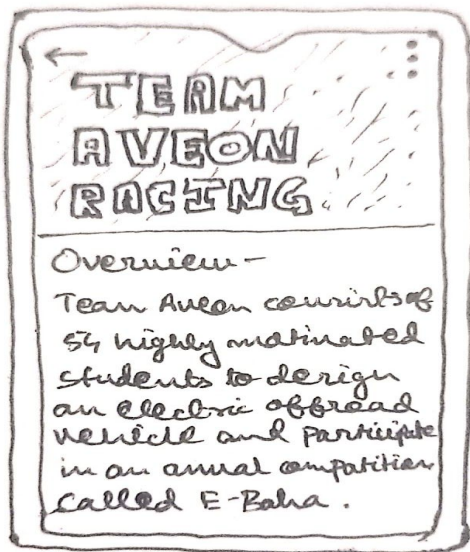 TEAM
AVEON
RACING
Overview-
Team Aveon consists of
54 highly motivated
students to design
an electric offroad
vehicle and participate
in an annual competition
called E-Baha.